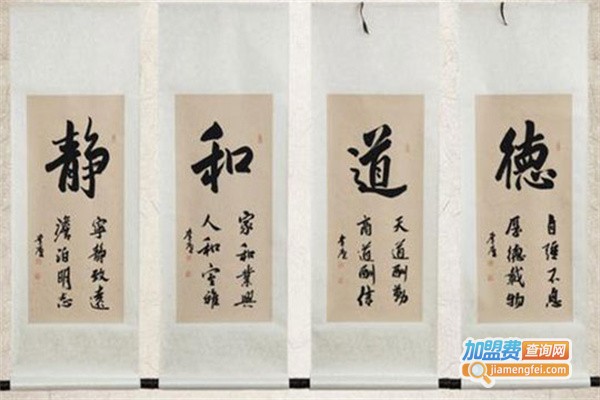 静
寧静致遠
澹泊明志
和
家和業興
人和
道
天道酬勤
商道酬信
德
自强不息
厚德載物
加盟费查询网
jiamengfei.com